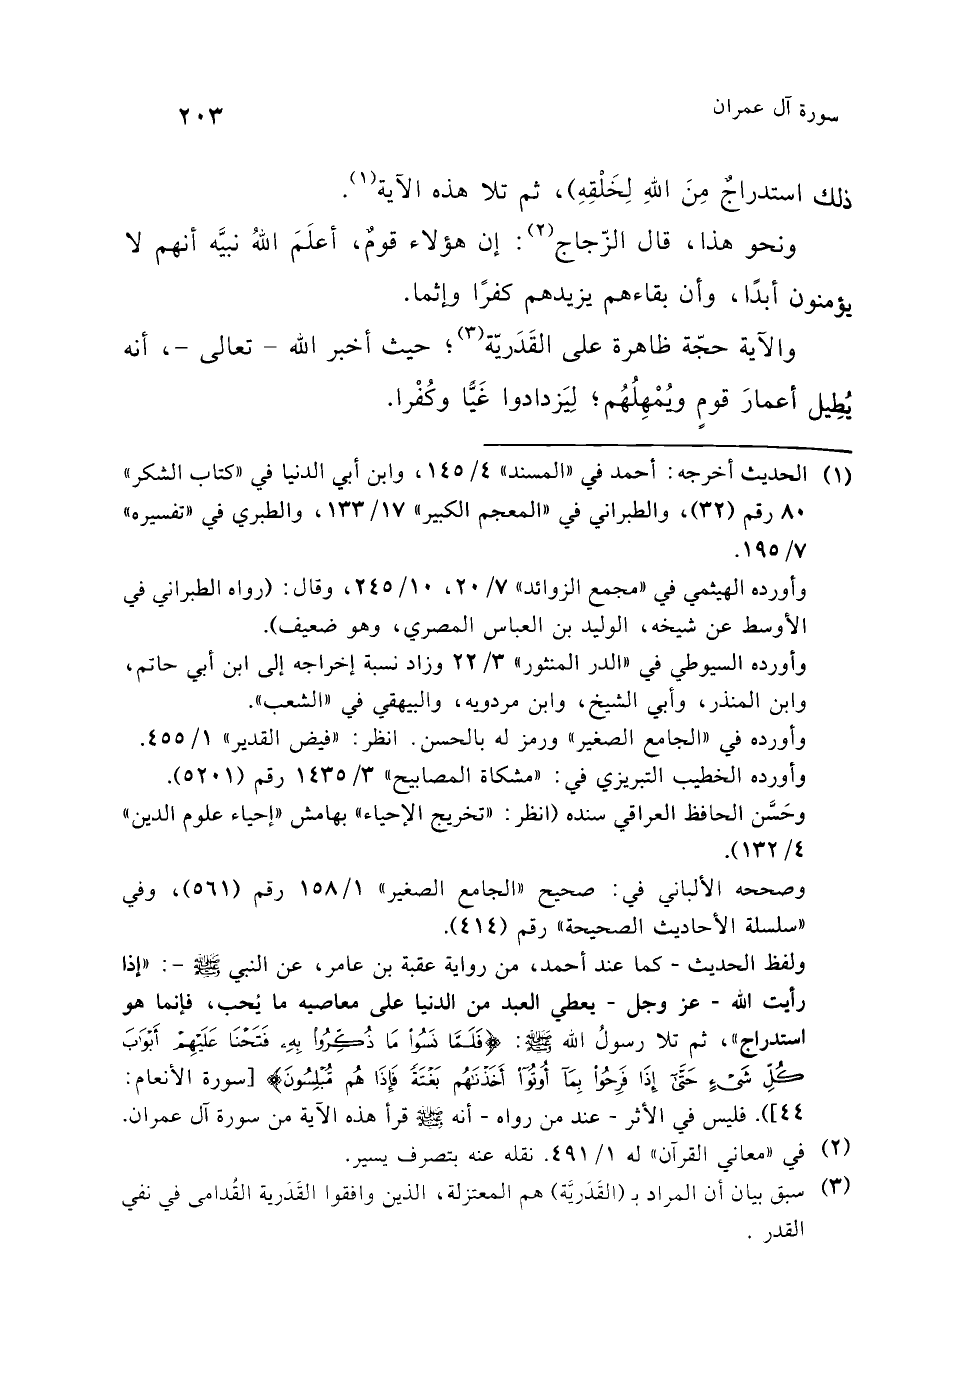 سورة آل عمران ٢٠٣
ذلك استدراجٌ مِنَ اللهِ لِخَلْقِهِ)، ثم تلا هذه الآية(١).
ونحو هذا، قال الزّجاج(٢): إن هؤلاء قومٌ، أعلَمَ اللهُ نبيَّه أنهم لا
يؤمنون أبدًا، وأن بقاءهم يزيدهم كفرًا وإثما.
والآية حجّة ظاهرة على القَدَريّة(٣)؛ حيث أخبر الله - تعالى -، أنه
يُطِيل أعمارَ قومٍ ويُمْهِلُهُم؛ لِيَزدادوا غَيًّا وكُفْرا.
(١) الحديث أخرجه: أحمد في «المسند» ٤/ ١٤٥، وابن أبي الدنيا في «كتاب الشكر»
٨٠ رقم (٣٢)، والطبراني في «المعجم الكبير» ١٧/ ١٣٣، والطبري في «تفسيره»
٧/ ١٩٥.
وأورده الهيثمي في «مجمع الزوائد» ٧/ ٢٠، ١٠/ ٢٤٥، وقال: (رواه الطبراني في
الأوسط عن شيخه، الوليد بن العباس المصري، وهو ضعيف).
وأورده السيوطي في «الدر المنثور» ٣/ ٢٢ وزاد نسبة إخراجه إلى ابن أبي حاتم،
وابن المنذر، وأبي الشيخ، وابن مردويه، والبيهقي في «الشعب».
وأورده في «الجامع الصغير» ورمز له بالحسن. انظر: «فيض القدير» ١/ ٤٥٥.
وأورده الخطيب التبريزي في: «مشكاة المصابيح» ٣/ ١٤٣٥ رقم (٥٢٠١).
وحَسَّن الحافظ العراقي سنده (انظر: «تخريج الإحياء» بهامش «إحياء علوم الدين»
٤/ ١٣٢).
وصححه الألباني في: صحيح «الجامع الصغير» ١/ ١٥٨ رقم (٥٦١)، وفي
«سلسلة الأحاديث الصحيحة» رقم (٤١٤).
ولفظ الحديث - كما عند أحمد، من رواية عقبة بن عامر، عن النبي ﷺ -: «إذا
رأيت الله - عز وجل - يعطي العبد من الدنيا على معاصيه ما يُحب، فإنما هو
استدراج»، ثم تلا رسولُ الله ﷺ: ﴿فَلَمَّا نَسُوا۟ مَا ذُكِّرُوا۟ بِهِۦ فَتَحْنَا عَلَيْهِمْ أَبْوَٰبَ
كُلِّ شَىْءٍ حَتَّىٰٓ إِذَا فَرِحُوا۟ بِمَآ أُوتُوٓا۟ أَخَذْنَٰهُم بَغْتَةً فَإِذَا هُم مُّبْلِسُونَ﴾ [سورة الأنعام:
٤٤]). فليس في الأثر - عند من رواه - أنه ﷺ قرأ هذه الآية من سورة آل عمران.
(٢) في «معاني القرآن» له ١/ ٤٩١. نقله عنه بتصرف يسير.
(٣) سبق بيان أن المراد بـ (القَدَريَّة) هم المعتزلة، الذين وافقوا القَدَرية القُدامى في نفي
القدر .